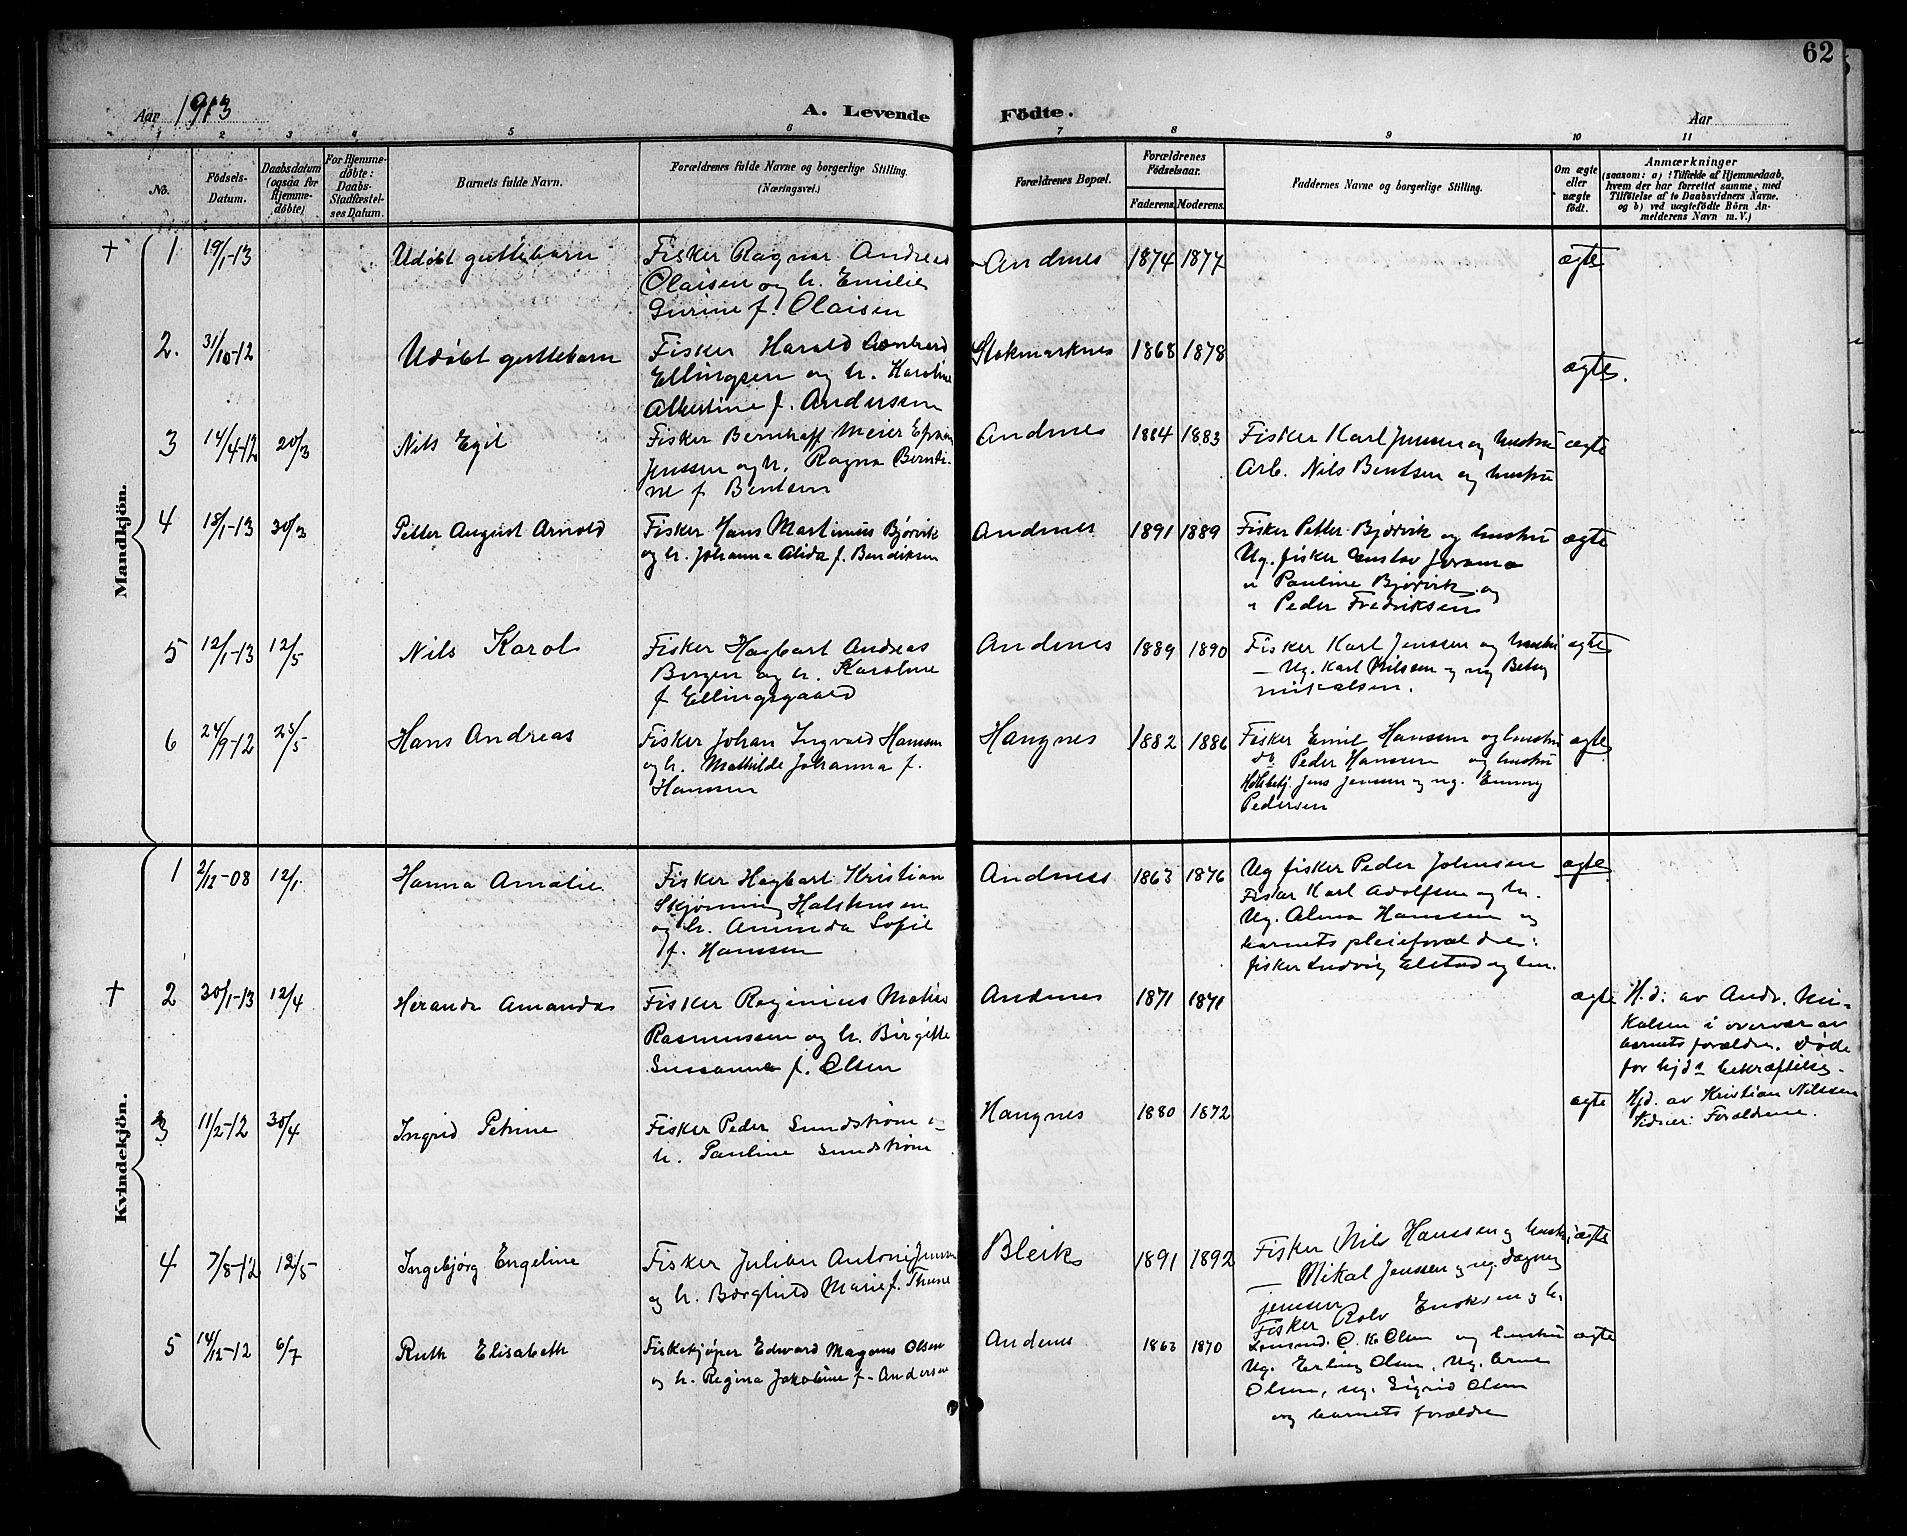 62
Aar 1913
A. Levende Födte.
Aar
1 2 3 4 5 6 7 8 9 10 11
No.
Födsels-Datum.
Daabsdatum (ogsaa for Hjemme-döbte)
For Hjemme-döbte: Daabs-Stadfæstel-ses Datum.
Barnets fulde Navn.
Forældrenes fulde Navne og borgerlige Stilling. (Næringsvei.)
Forældrenes Bopæl.
Forældrenes Födselsaar.
Faderens. Moderens.
Faddernes Navne og borgerlige Stilling.
Om ægte eller uægte födt.
Anmærkninger
(saasom: a) i Tilfælde af Hjemmedaab, hvem der har forrettet samme, med Tilföielse af to Daabsvidners Navne. og b) ved uægtefödte Börn An-melderens Navn m. V.)
Mandkjön.
+ 1 19/1-13 Udøbt guttebarn Fisker Ragnar Andreas Andenes 1874 1877 ægte
Olaisen og h. Emilie
Gurine f. Olaisen
2. 31/10-12 Udøbt guttebarn Fisker Harald Stokmarknes 1868 1878 ægte.
Ellingsen og h. Karoline
Albertine f. Andersen
3 14/4-12 20/3 Nils Egil Fisker Bernhoff Meier Andenes 1884 1883 Fisker Karl Jenssen og hustru ægte
Jenssen og h. Ragna Berndi- Arb. Nils Bentsen og hustru
ne f. Bentsen
4 18/1-13 30/3 Petter August Arnold Fisker Hans Martinius Bjørvik Andenes 1891 1889 Fisker Petter Bjørvik og hustru ægte
og h. Johanna Alida f. Bendiksen Ug. fisker Gustav
" Pauline Bjørvik og
" Peder Fredriksen
5 12/1-13 12/5 Nils Karol Fisker Hagbart Andreas Andenes 1889 1890 Fisker Karl Jenssen og hustru ægte
og h. Karoline — Ug. Karl Nilssen og ug Betsy
f Ellingsgaard Mikalsen.
6 24/9-12 25/5 Hans Andreas Fisker Johan Ingvald Hanssen Haugnes 1882 1886 Fisker Emil Hanssen og hustru ægte
og h. Mathilde Johanna f. do Peder Hanssen og hustru
Hanssen Jens Jenssen og ug. Emmy
Pedersen
Kvindekjön.
1 2/12-08 12/1 Hanna Amalie Fisker Hagbart Kristian Andenes 1863 1876 Ug fisker Peder Johnsen ægte
Skjønning Halshusen Fisker Karl Adolfsen og h.
og h. Aminda Sofie Ug. Alma Hanssen og
f. Hanssen barnets pleieforældre:
fisker Ludvig Elstad og hu.
+ 2 30/1-13 12/4 Heranda Amanda Fisker Raginius Andenes 1871 1871 ægte H.d. av Andr. Mi-
Rasmussen og h. Birgitte kalsen i overvær av
Susanna f. Olsen barnets forældre. Døde
for hjd's bekræftelse.
3 11/2-12 30/4 Ingrid Petrine Fisker Peder Sundstrøm og Haugnes 1880 1872 ægte Hjd. av Kristian Nilssen
h. Pauline Sundstrøm Vidner: Forældrene.
4 7/8-12 12/5 Ingebjørg Engeline Fisker Julian Antoni Jenssen Bleik 1891 1892 Fisker Nils Hanssen og hustru ægte
og h. Borghild Marie f. Thune — Mikal Jenssen og ug. Dagny
Jenssen
Fisker Rolv Enoksen og h.
5 14/12-12 6/7 Ruth Elisabeth Fiskekjøper Edward Magnus Olsen Andenes 1863 1870 Lensmd. O. K. Olsen og hustru ægte
og h. Regina Jakobine f. Andersen Ug. Erling Olsen, ug. Arne
Olsen, ug. Sigrid Olsen
og barnets forældre